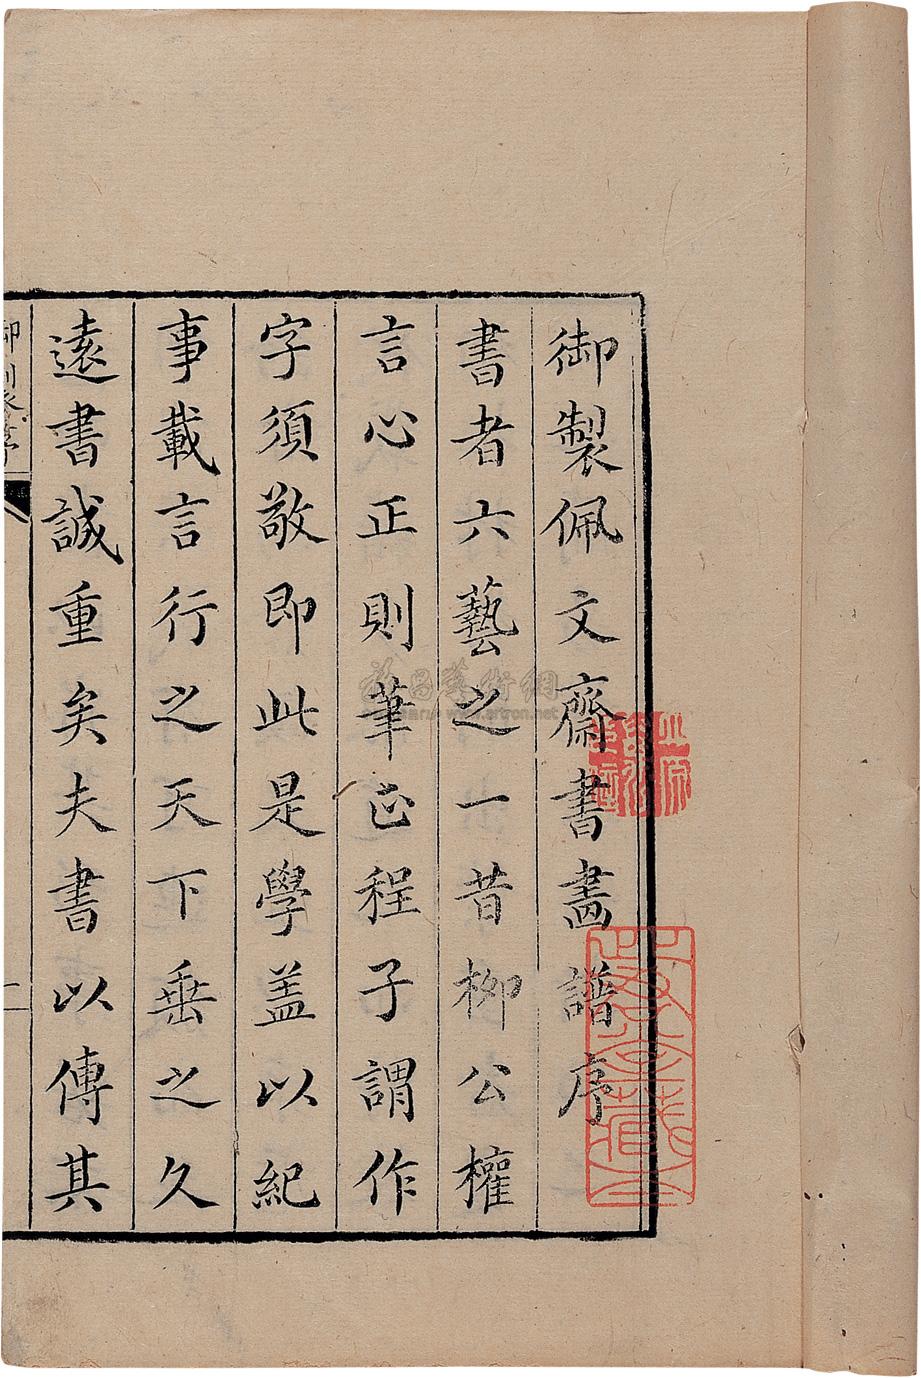 御製佩文齋書畫譜序
書者六藝之一昔柳公權
言心正則筆正程子謂作
字須敬即此是學蓋以紀
事載言行之天下垂之久
遠書誠重矣夫書以傳其
御製序